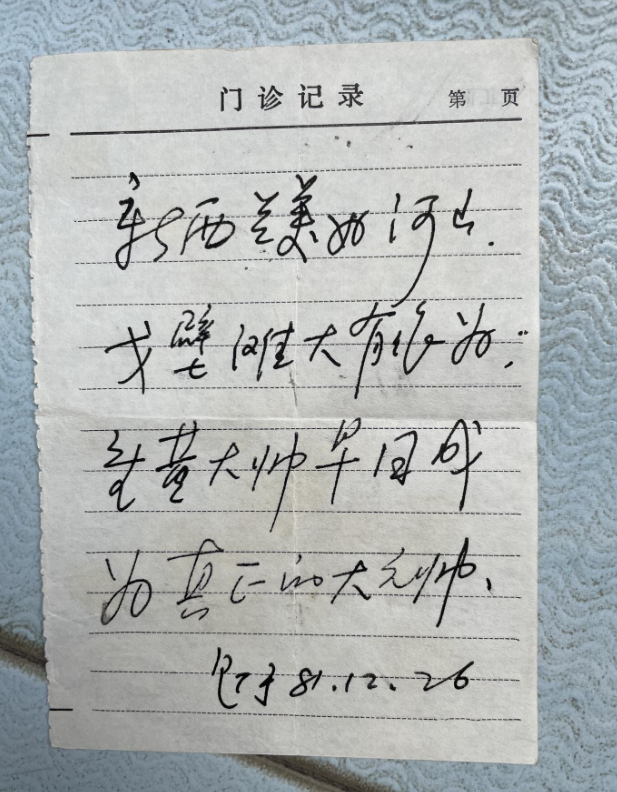 门诊记录 第 页
新西兰美如河山.
戈壁滩大有作为;
黄大帅早日成
为真正的大元帅、
于81.12.26